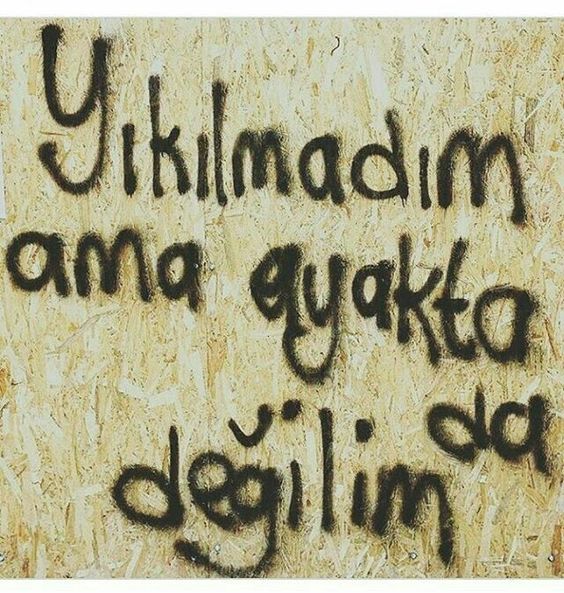 Yıkılmadım
ama ayakta
da
değilim